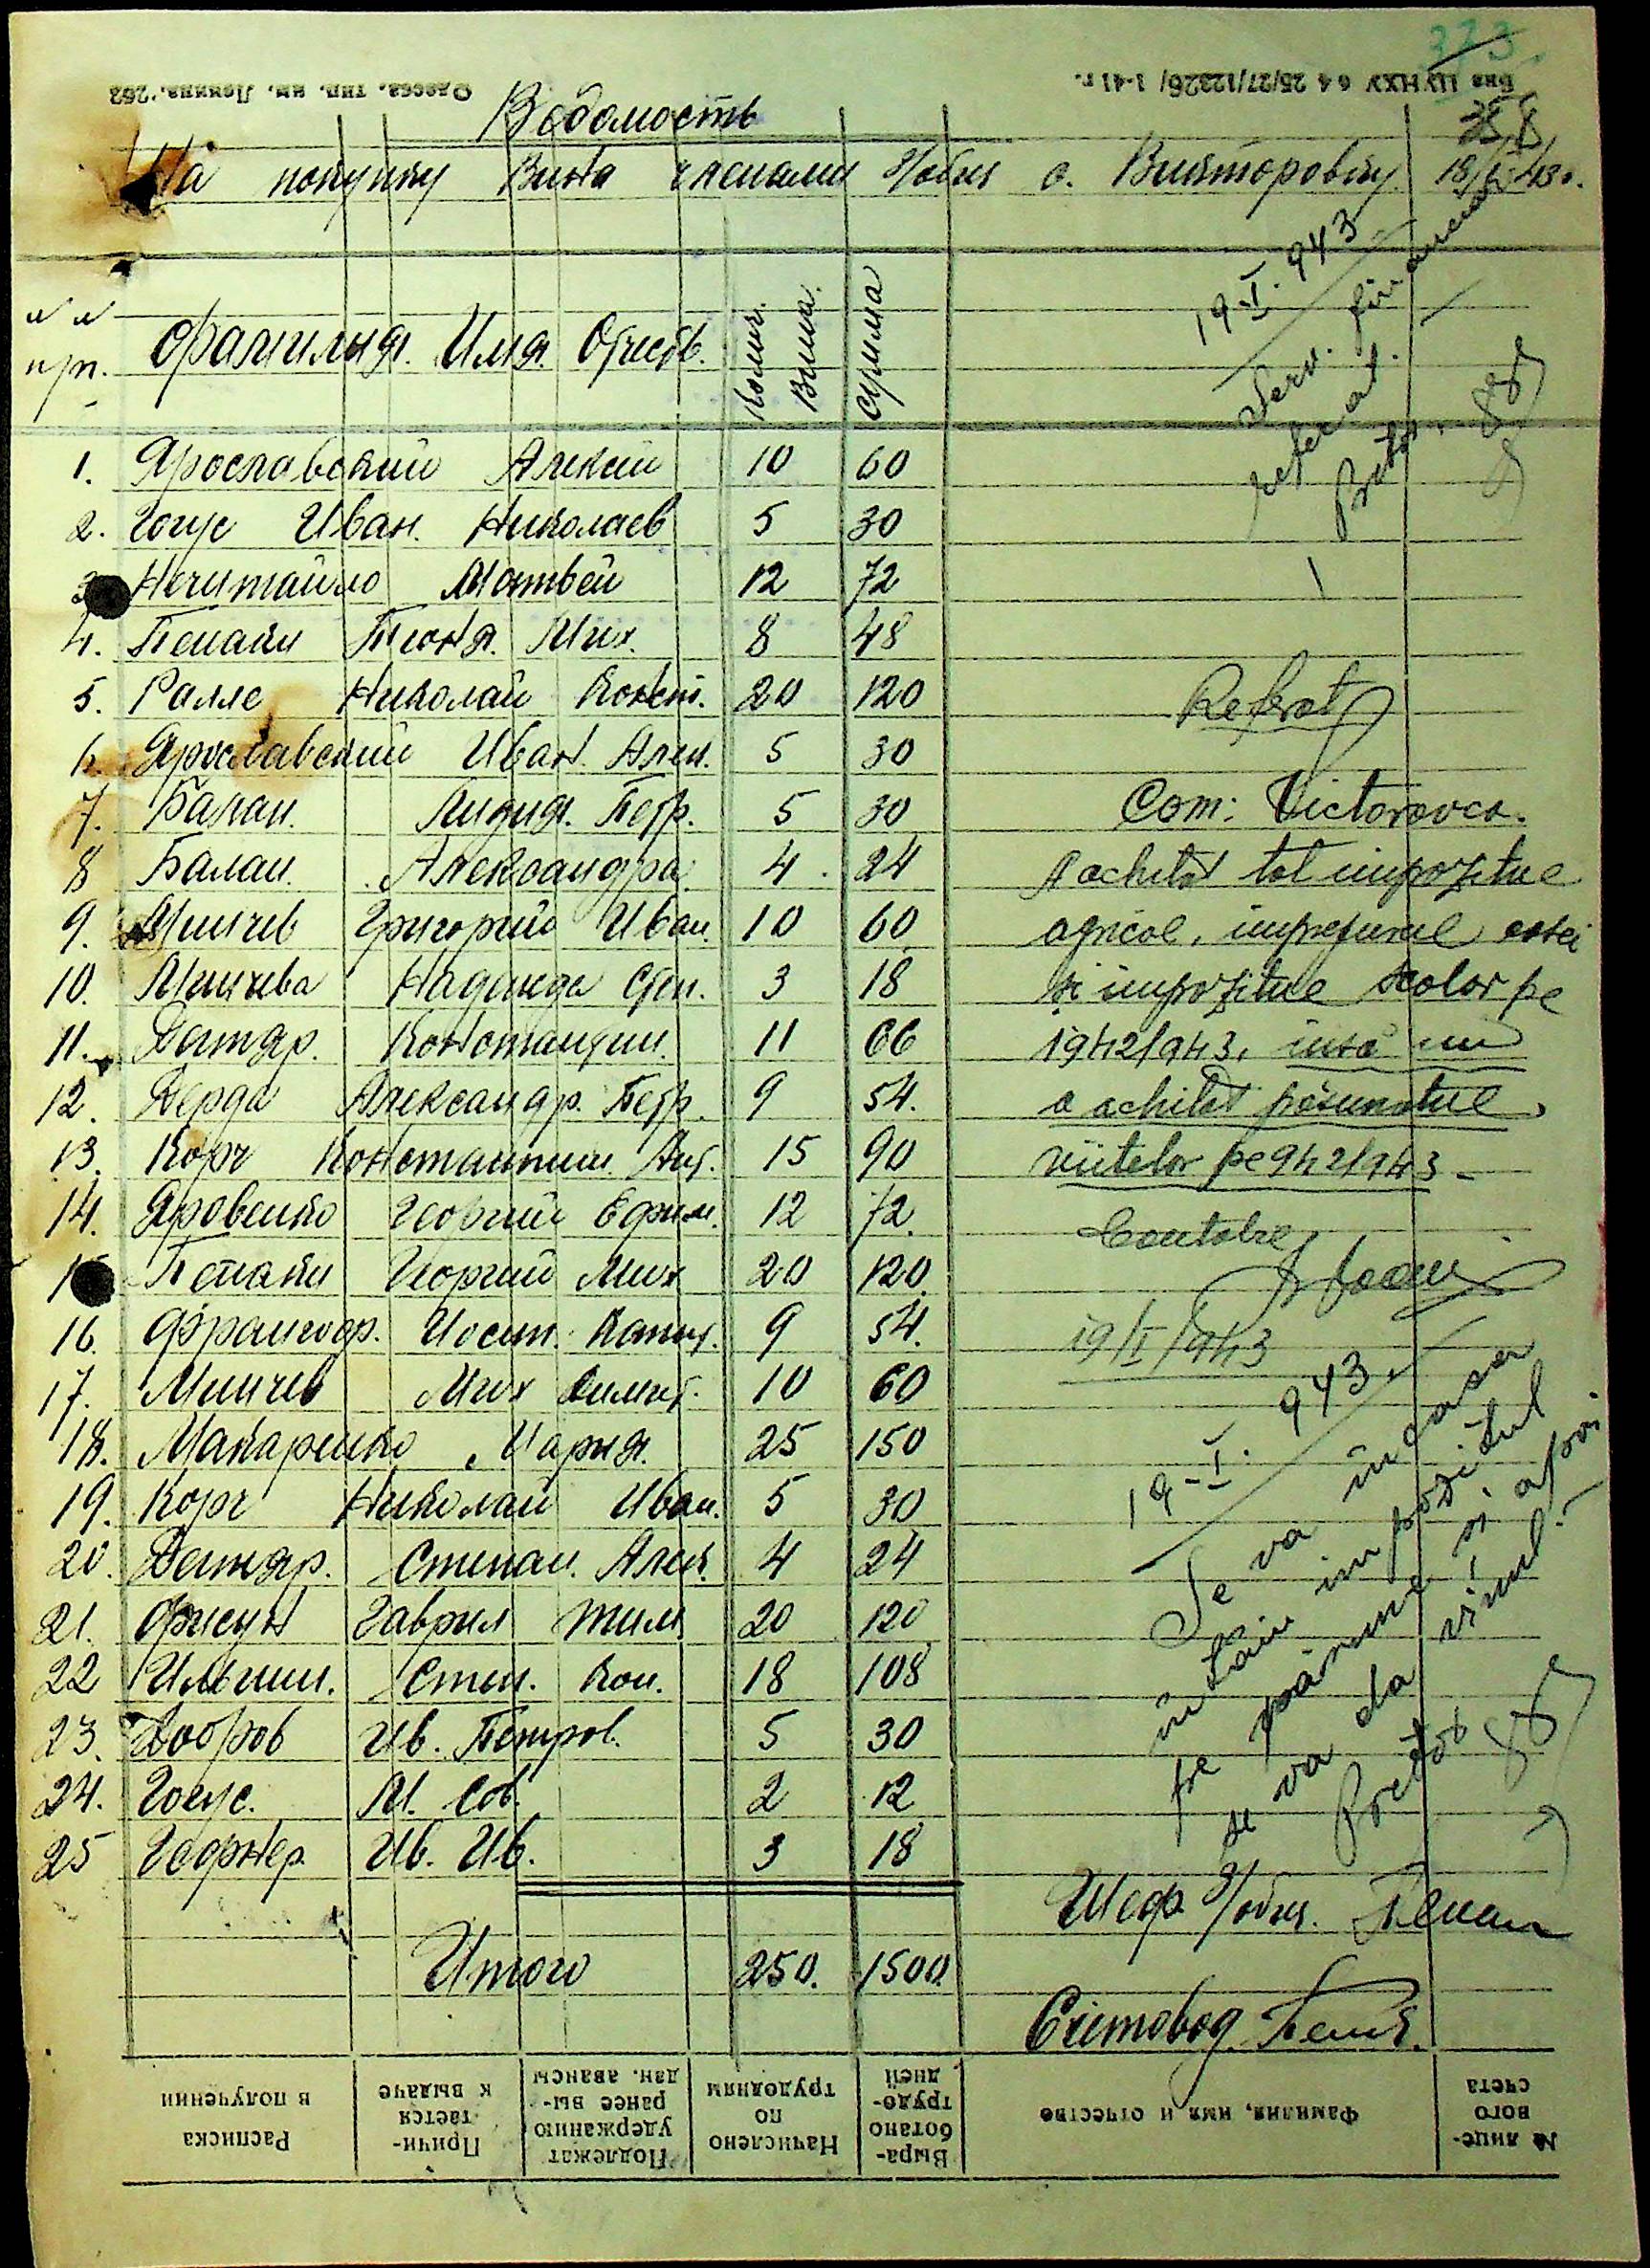 373
358
Бия ЦУНХУ 64 25/27/12326/ 1-41 г.
Одесса, тип. им. Ленина. 262
Ведомость
На покупку Вина членами З/общ с. Викторовку 18/I 43г.
№ №
п/п. Фамилия. Имя. Отчеств. Колич. Вина. Сумма
1. Ярославский Алексей 10 60
2. Гогус Иван. Николаев 5 30
3. Нечитайло Матвей 12 72
4. Мих. 8 48
5. Ралле Николай Конст. 20 120
6. Ярославский Иван. Алек. 5 30
7. Балан. Лидия. Петр. 5 30
8 Балан. Александра. 4 24
9. Минчев Григорий Иван. 10 60
10. Минчева Надежда Степ. 3 18
11. Дегтяр. Константин. 11 66
12. Дерда Александр. Петр. 9 54.
13. Корч Константин. Ант. 15 90
14. Яровенко Георгий Ефим. 12 72.
15 Георгий Мих 20 120.
16. 9 54.
17. Минчев Мих Димит. 10 60
18. Макаренко Мария. 25 150
19. Корч Николай Иван. 5 30
20. Дегтяр. Степан. Алек. 4 24
21. Фисун Гаврил Тим. 20 120
22 Ильчин. Степ. Кон. 18 108
23. Добров Ив. Петров. 5 30
24. Гогус. М. 2 12
25 Гефнер Ив. Ив. 3 18
Итого 250. 1500.
19-I. 943
Serv. financiar
referat.
Pretor.
Referat
Com: Victorovca.
A achitat tot impozitul
agricol, impozitul
și impozitul scolar pe
1942/943, însă nu
a achitat păsunatul
vitelor pe 942/943 -
Contabil
19/I/943
19-I. 943.
Se va încasa
întăiu impozitul
pe pășune și apoi
se va da vinul.
Pretor
Шеф З/общ.
Счетовод.
№ лице-
вого
счета
Фамилия, имя и отчество
Выра-
ботано
трудо-
дней
Начислено
по
трудодням
Подлежат
удержанию
ранее вы-
дан. авансы
Причи-
тается
к выдаче
Расписка
в получении